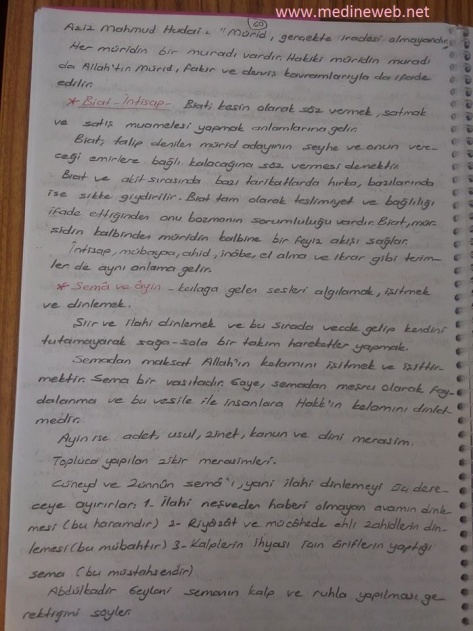 www.medineweb.net
60
Aziz Mahmud Hudai: "Mürid, gerçekte iradesi olmayandır.
Her müridin bir muradı vardır. Hakiki müridin muradı
da Allah'tır. Mürid, fakir ve derviş kavramlarıyla da ifade
edilir.
* Biat-İntisap- Biat; kesin olarak söz vermek, satmak
ve satış muamelesi yapmak anlamlarına gelir.
Biat; talip denilen mürid adayının şeyhe ve onun vere-
ceği emirlere bağlı kalacağına söz vermesi demektir.
Biat ve akit sırasında bazı tarikatlarda hırka, bazılarında
ise sikke giydirilir. Biat tam olarak teslimiyet ve bağlılığı
ifade ettiğinden onu bozmanın sorumluluğu vardır. Biat, mür-
şidin kalbinden müridin kalbine bir feyiz akışı sağlar.
İntisap, mübayaa, ahid, inâbe, el alma ve ikrar gibi terim-
ler de aynı anlama gelir.
* Semâ ve Ayin - kulağa gelen sesleri algılamak, işitmek
ve dinlemek.
Şiir ve ilahi dinlemek ve bu sırada vecde gelip kendini
tutamayarak sağa-sola bir takım hareketler yapmak.
Semadan maksat Allah'ın kelamını işitmek ve işittir-
mektir. Sema bir vasıtadır. Gaye, semadan meşru olarak fay-
dalanma ve bu vesile ile insanlara Hakk'ın kelamını dinlet-
medir.
Ayin ise adet, usul, zinet, kanun ve dini merasim.
Topluca yapılan zikir merasimleri.
Cüneyd ve Zünnûn semâ'ı, yani ilahi dinlemeyi üç dere-
ceye ayırırlar: 1- İlahi neşveden haberi olmayan avamın dinle-
mesi (bu haramdır) 2- Riyâzât ve mücâhede ehli zahidlerin din-
lemesi (bu mübahtır) 3- Kalplerin ihyası için ariflerin yaptığı
sema (bu müstahsendir)
Abdülkadir Geylani semanın kalp ve ruhla yapılması ge-
rektiğini söyler.